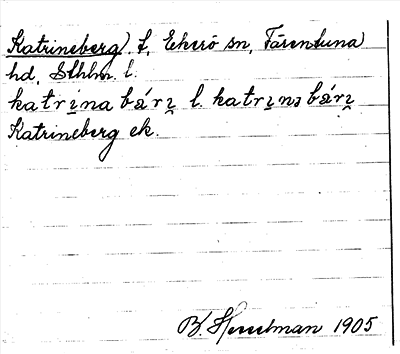 Katrineberg), f, Ekerö sn, Färentuna
hd, Sthlm l.
katrina bári l. katrinə bári
Katrineberg ek.
1905